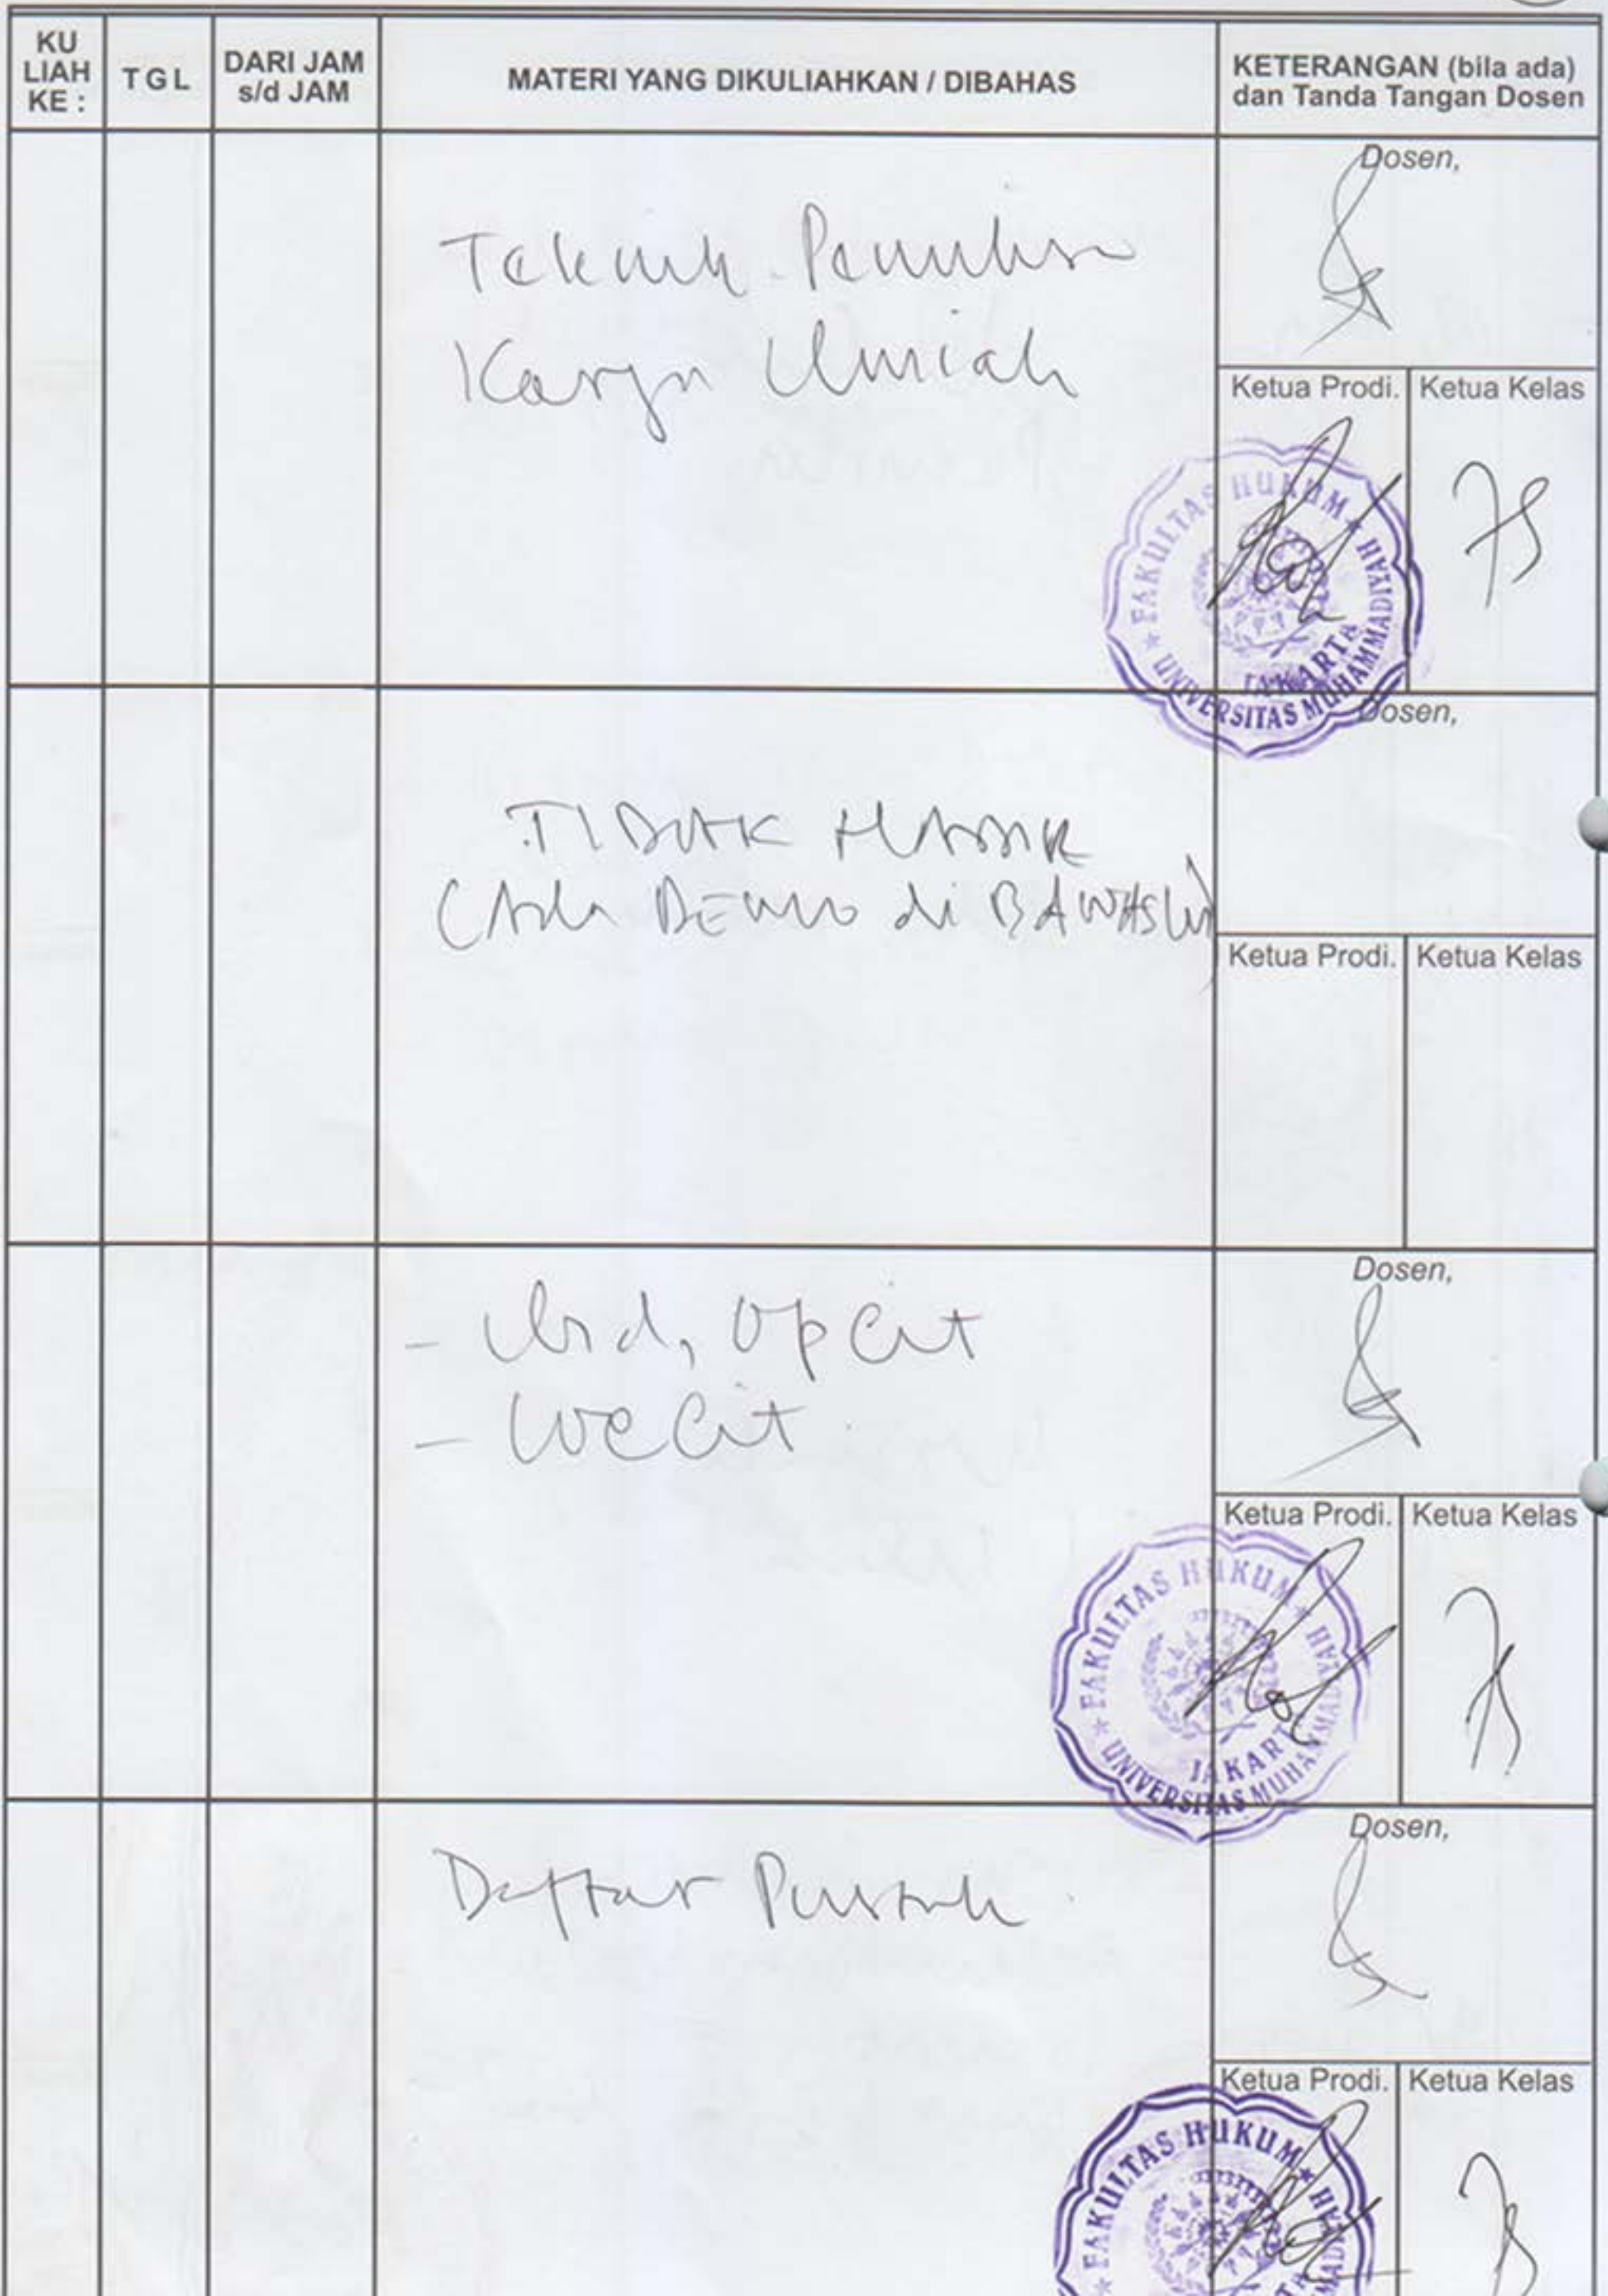 KU LIAH KE :
TGL
DARI JAM s/d JAM
MATERI YANG DIKULIAHKAN / DIBAHAS
KETERANGAN (bila ada) dan Tanda Tangan Dosen
Teknik Penulisan
Karya Ilmiah
Dosen,
Ketua Prodi.
Ketua Kelas
FAKULTAS HUKUM
UNIVERSITAS MUHAMMADIYAH
JAKARTA
TIDAK HADIR
(Ada DEMO di BAWASLU)
Dosen,
Ketua Prodi.
Ketua Kelas
- Ibid, Opcit
- Loccit
Dosen,
Ketua Prodi.
Ketua Kelas
FAKULTAS HUKUM
UNIVERSITAS MUHAMMADIYAH
JAKARTA
Daftar Pustaka
Dosen,
Ketua Prodi.
Ketua Kelas
FAKULTAS HUKUM